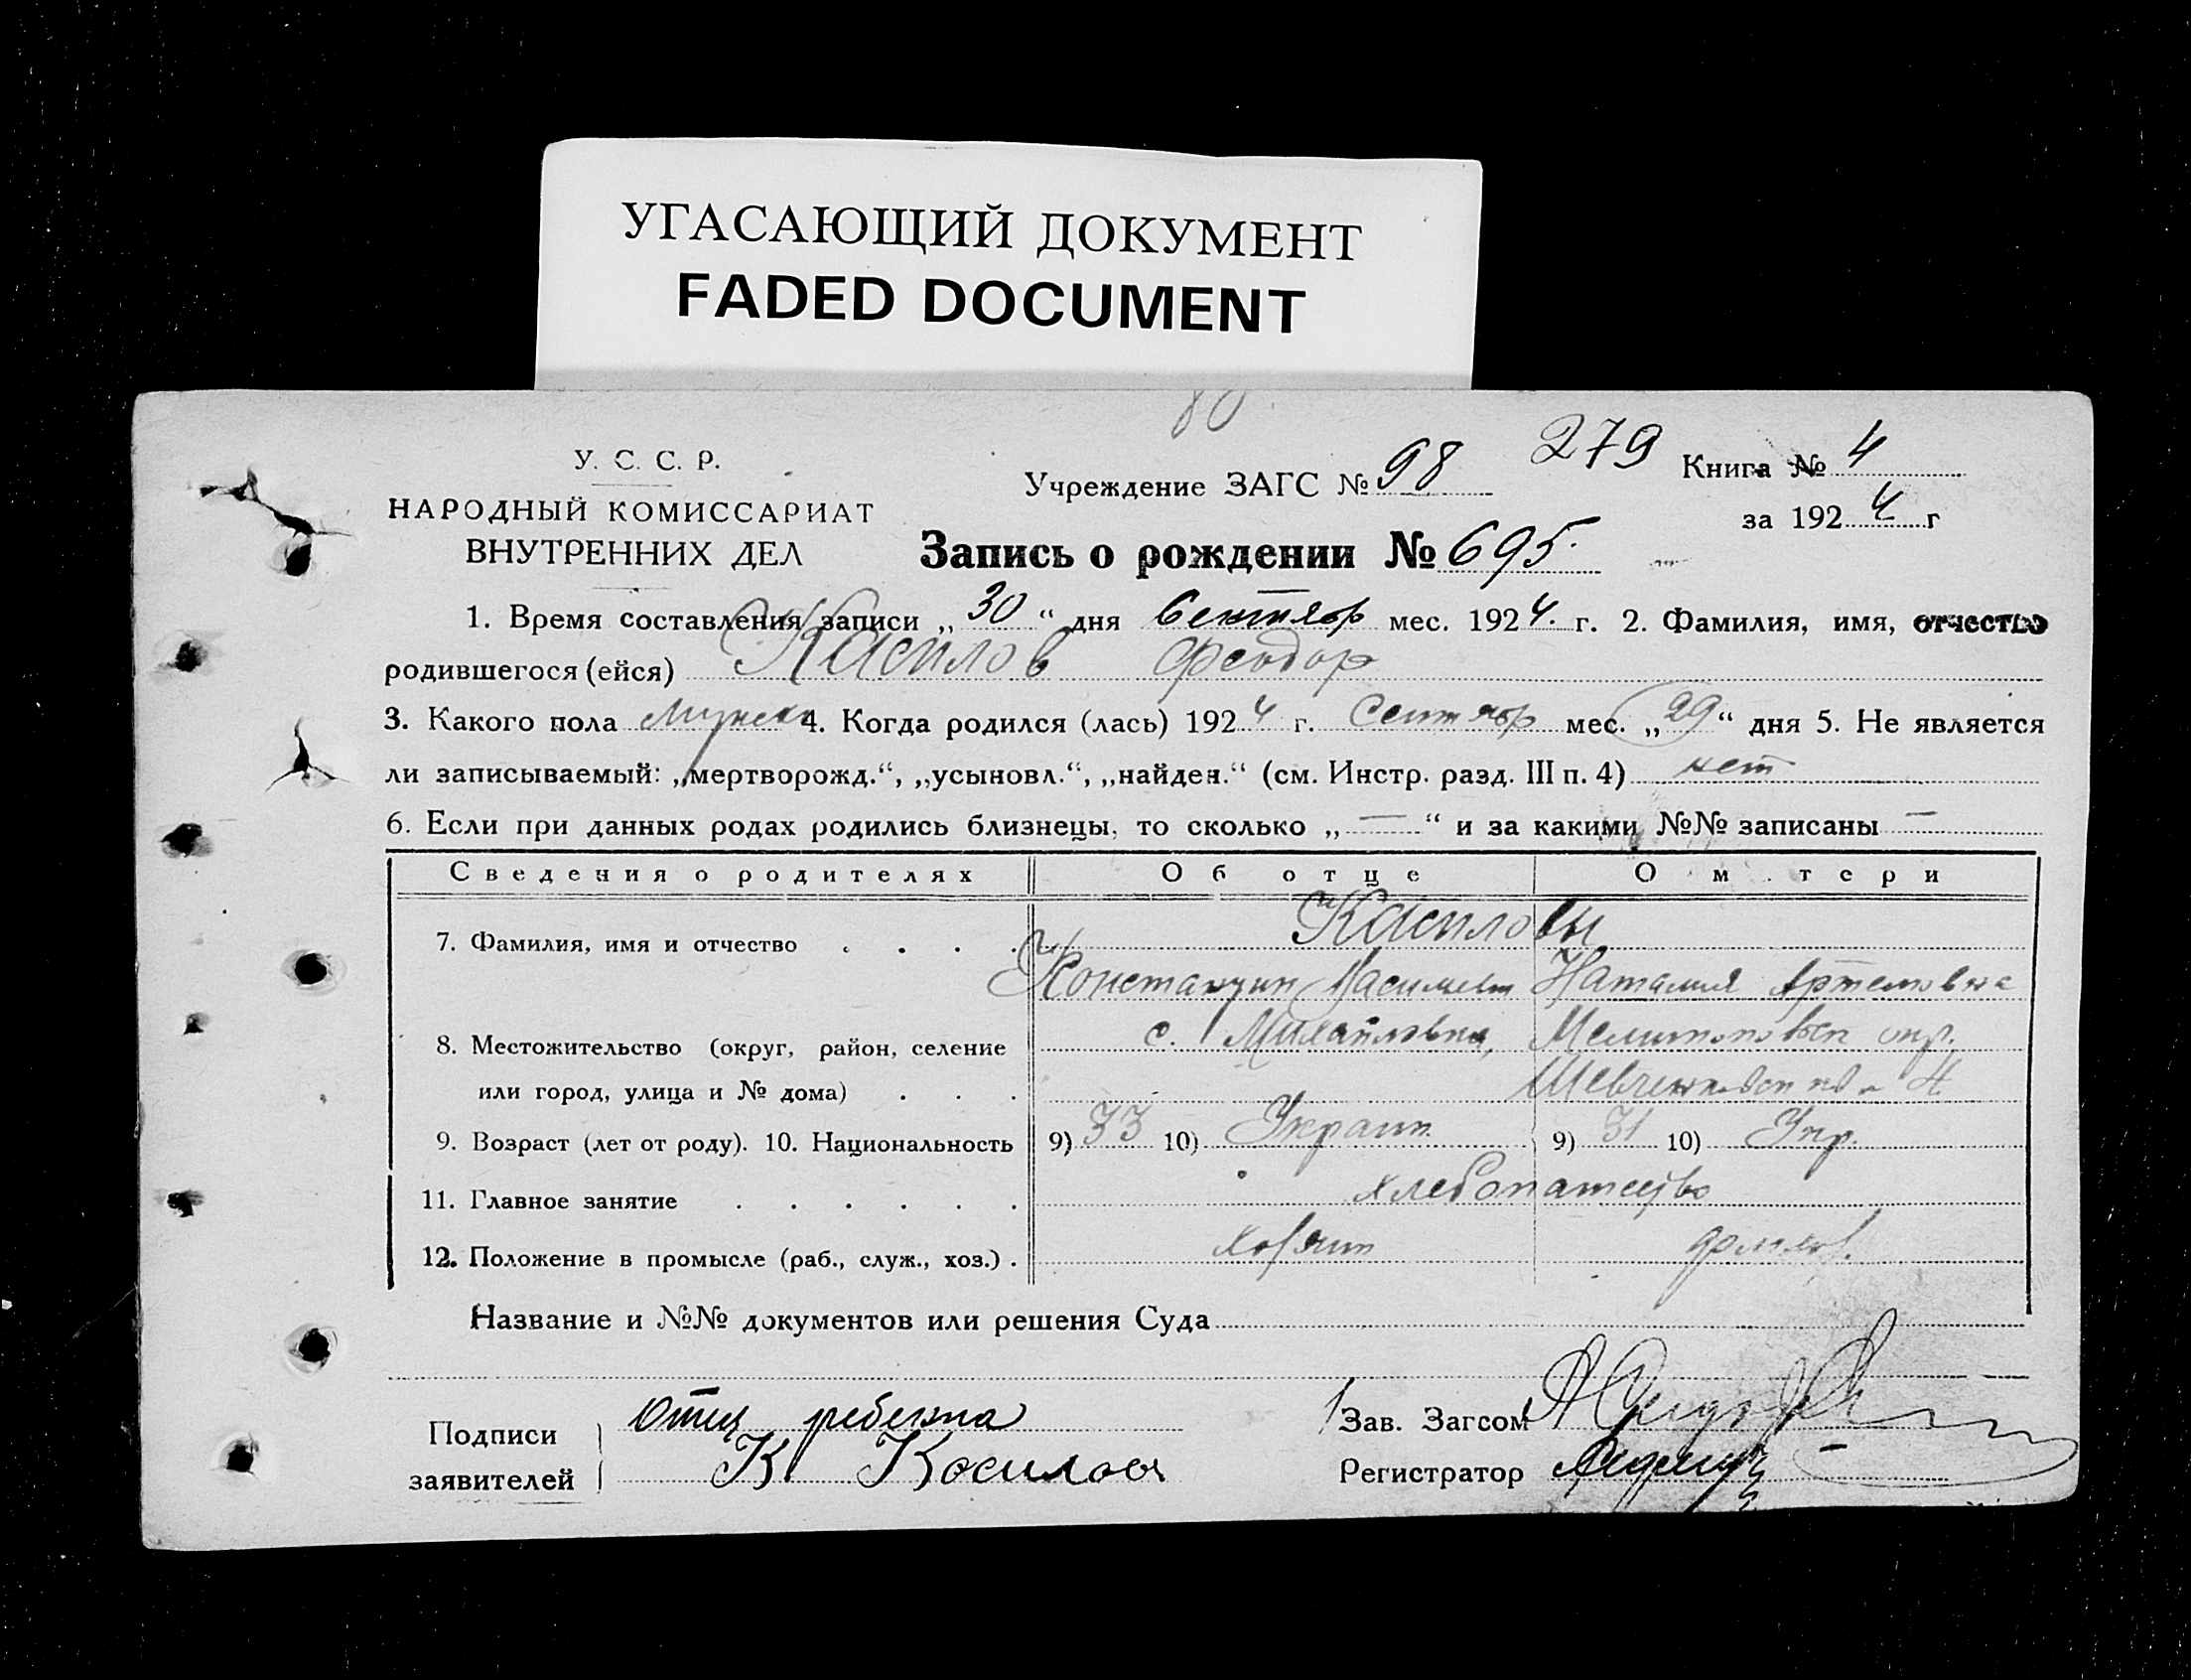 УГАСАЮЩИЙ ДОКУМЕНТ
FADED DOCUMENT
80
У. С. С. Р.
НАРОДНЫЙ КОМИССАРИАТ
ВНУТРЕННИХ ДЕЛ
Учреждение ЗАГС № 98 279 Книга № 4
за 1924 г
Запись о рождении № 695.
1. Время составления записи „30“ дня Сентябр мес. 1924. г. 2. Фамилия, имя, отчество
родившегося (ейся) Касилов Феодор
3. Какого пола Мужск 4. Когда родился (лась) 1924 г. Сентябр мес. „29“ дня 5. Не является
ли записываемый: „мертворожд.“, „усыновл.“, „найден.“ (см. Инстр. разд. III п. 4) нет
6. Если при данных родах родились близнецы, то сколько „—“ и за какими №№ записаны —
Сведения о родителях Об отце О м тери
7. Фамилия, имя и отчество . . . . Касиловы
Константин Наталия Артемовна
8. Местожительство (округ, район, селение с. Михайловка, Мелитоповск окр.
или город, улица и № дома) . . . 4
9. Возраст (лет от роду). 10. Национальность 9) 33 10) Украин 9) 31 10) Укр.
11. Главное занятие . . . . . . хлебопашество
12. Положение в промысле (раб., служ., хоз.) . хозяин
Название и №№ документов или решения Суда
Подписи заявителей Отец ребенка
К Косилов
Зав. Загсом
Регистратор